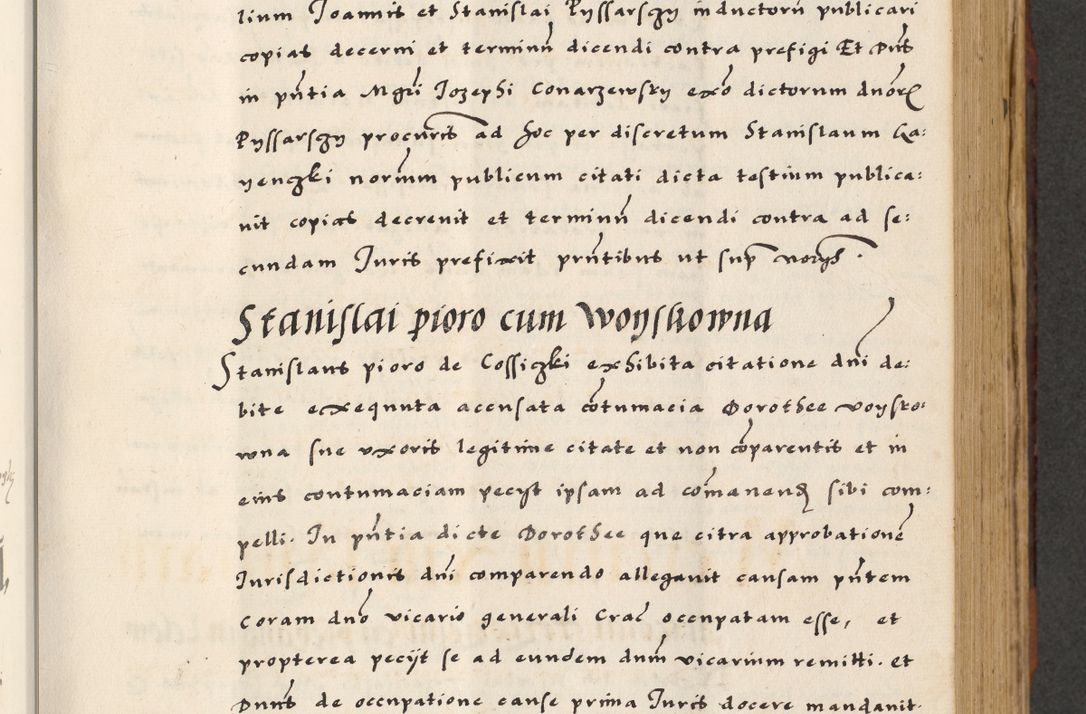 lium Joannis et Stanislai Pyssarsczy inductorũ publicari
copias decerni et terminũ dicendi contra prefigi Et Dñs
in pñtia Mgri Jozephi Conarzewsky exõ dictorum dnorȝ
Pyssarsczy procuris ad hoc per discretum Stanislaum Ga:
yenczki norium publicum citati dicta testium publica:
uit copias decreuit et terminũ dicendi contra ad se:
cundam Juris prefixit prñtibus ut supˢ
Stanislai pioro cum Woyskowna
Stanislaus pioro de Cossiczki exhibita citatione dñi de:
bite exequuta accusata cõtumacia Dorothee voysko:
wna sue uxoris legitime citate et non cõparentis et in
eius contumaciam pecyt ipsam ad cõmanendȝ sibi com:
pelli. In pñtia dicte Dorothee que citra approbationẽ
Jurisdictionis dñi comparendo allegauit causam pñtem
coram dnõ vicario generali Crac̃ occupatam esse, et
propterea pecijt se ad eundem dnm̃ vicarium remitti. et
Dnũs de occupatione cause prima Juris docere mandauit.